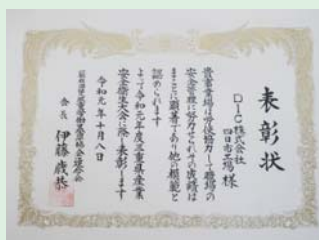 表彰状
DIC株式会社
四日市工場 様
貴事業場は労使協力して職場の
安全管理に努力せられその実績は
まことに顕著であり他の模範と
認められます
よって令和元年度三重県産業
安全衛生大会に際し表彰します
令和元年十月八日
会長 伊藤歳恭